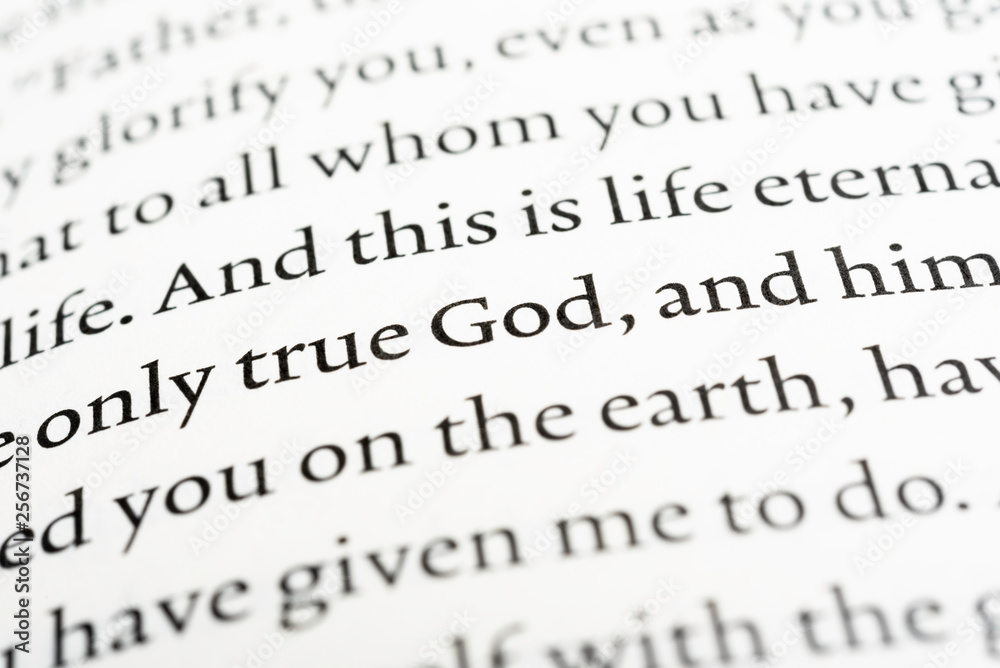 Father,
y glorify you, even as you ga
hat to all whom you have gi
life. And this is life eterna
e only true God, and him
ed you on the earth, hav
have given me to do.
elf with the g
Adobe Stock | #256737128